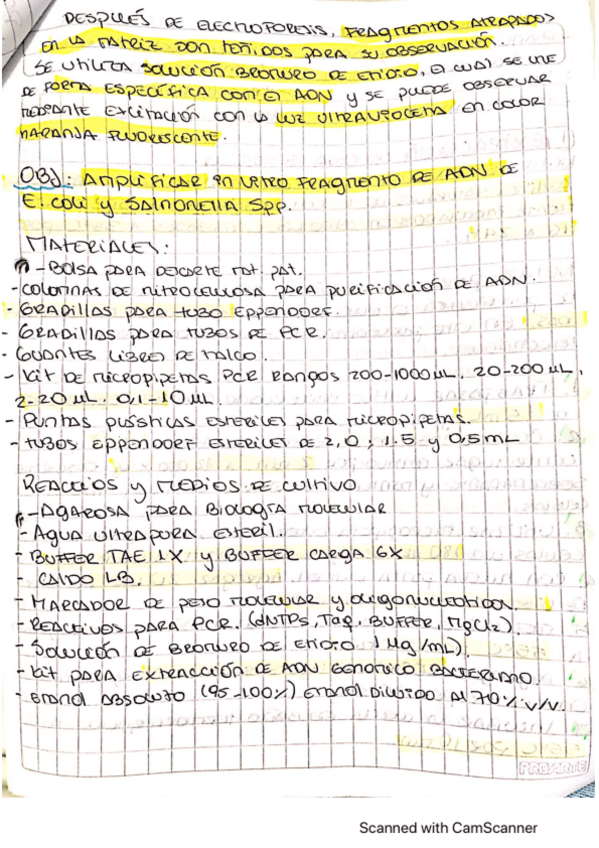 DESPUÉS DE ELECTROFORESIS, FRAGMENTOS ATRAPADOS
EN LA MATRIZ SON TEÑIDOS PARA SU OBSERVACIÓN.
SE UTILIZA SOLUCIÓN BROMURO DE ETIDIO, EL CUAL SE UNE
DE FORMA ESPECÍFICA CON EL ADN Y SE PUEDE OBSERVAR
MEDIANTE EXCITACIÓN CON LA LUZ ULTRAVIOLETA EN COLOR
NARANJA FLUORESCENTE.
OBJ: AMPLIFICAR IN VITRO FRAGMENTO DE ADN DE
E. COLI Y SALMONELLA SPP.
MATERIALES:
- BOLSA PARA DESCARTE MAT. PAT.
- COLUMNAS DE NITROCELULOSA PARA PURIFICACIÓN DE ADN.
- GRADILLAS PARA TUBO EPPENDORF.
- GRADILLAS PARA TUBOS DE PCR.
- GUANTES LIBRES DE TALCO.
- KIT DE MICROPIPETAS PCR RANGOS 200-1000 µL, 20-200 µL,
2-20 µL, 0,1-10 µL
- PUNTAS PLÁSTICAS ESTERILES PARA MICROPIPETAS.
- TUBOS EPPENDORF ESTERILES DE 2,0 ; 1.5 Y 0,5 mL
REACTIVOS Y MEDIOS DE CULTIVO
- AGAROSA PARA BIOLOGÍA MOLECULAR
- AGUA ULTRAPURA ESTERIL.
- BUFFER TAE 1X Y BUFFER CARGA 6X
- CALDO LB.
- MARCADOR DE PESO MOLECULAR Y OLIGONUCLEOTIDOS.
- REACTIVOS PARA PCR. (dNTPs, Taq, BUFFER, MgCl2).
- SOLUCIÓN DE BROMURO DE ETIDIO 1 µg/mL).
- KIT PARA EXTRACCIÓN DE ADN GENOMICO BACTERIANO.
- ETANOL ABSOLUTO (95-100%) ETANOL DILUIDO AL 70% V/V.
PROARTE
Scanned with CamScanner